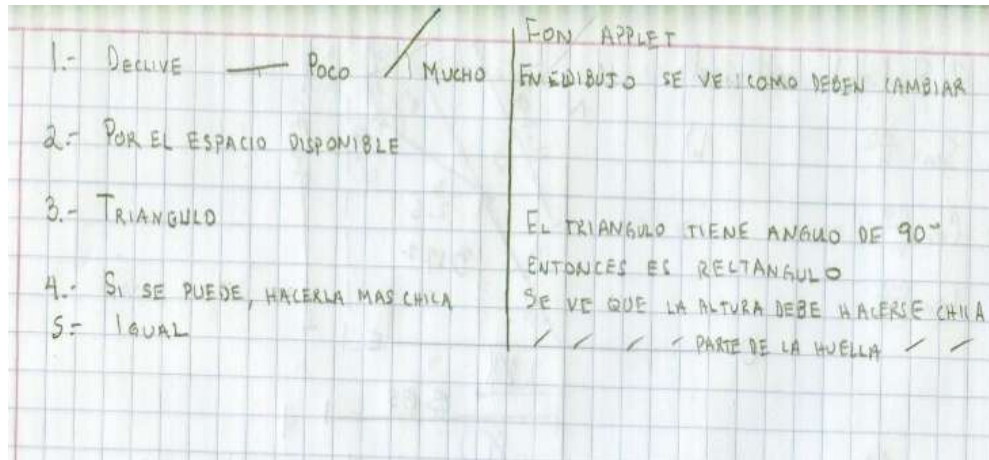 1.- DECLIVE — POCO / MUCHO
2.- POR EL ESPACIO DISPONIBLE
3.- TRIANGULO
4.- SI SE PUEDE, HACERLA MAS CHICA
5.- IGUAL
EON APPLET
EN EL DIBUJO SE VE COMO DEBEN CAMBIAR
EL TRIANGULO TIENE ANGULO DE 90°
ENTONCES ES RECTANGULO
SE VE QUE LA ALTURA DEBE HACERSE CHICA
/ / / / PARTE DE LA HUELLA / /